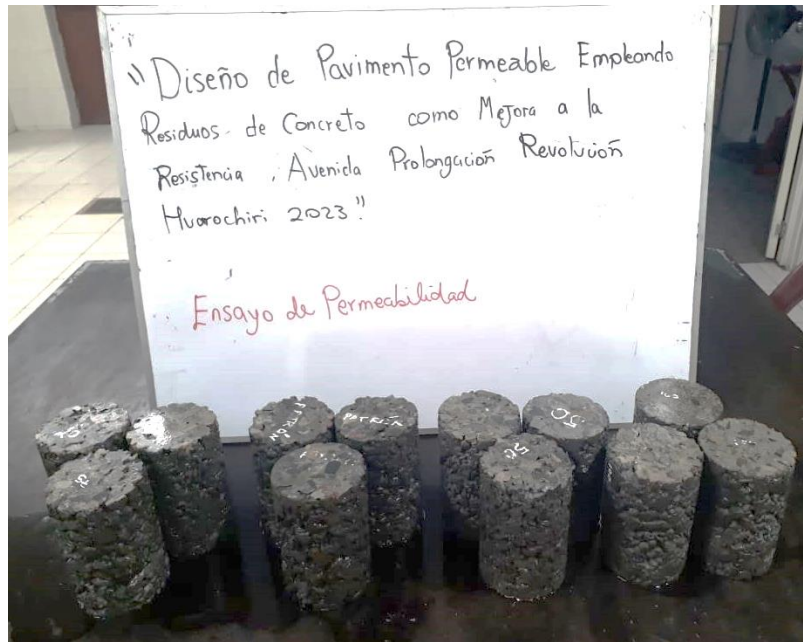 "Diseño de Pavimento Permeable Empleando
Residuos de Concreto como Mejora a la
Resistencia, Avenida Prolongación Revolución
Huarochiri 2023"
Ensayo de Permeabilidad
PATRÓN
50
50